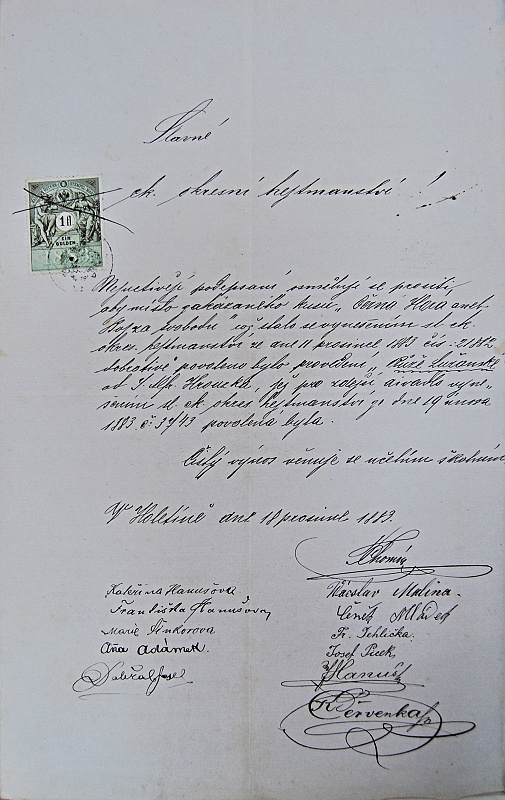 Slavné
ck. okresní hejtmanství!
1 fl
EIN
GULDEN
Nejuctivěji podepsaní osmělují se prositi,
aby místo zakázaného kusu „Černá Hora aneb
Bojza svobodu" což stalo se vynešením sl. ck.
okres. hejtmanství ze dne 11 prosince 1883 čís.
povoleno bylo provedení „Růže
od J. Hroucka, jej pro zdejší divadlo vyne-
šením sl. ck. okres. hejtmanství ze dne 19 února
1883 povolená byla.
Čistý výnos věnuje se účelům školním
V Holetíně dne 18 prosince 1883.
Kateřina Hanušova
Františka Hanušova
Marie Finkorova
Aňa Adámek.
Dobřal Josef
Václav Malina.
Čeněk Mládek
Fr. Jehlička.
Josef Picek
Hanuš
Červenka